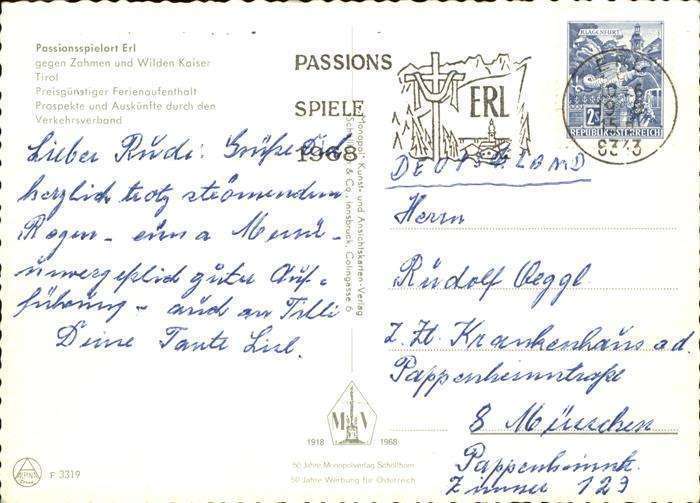 Passionsspielort Erl
gegen Zahmen und Wilden Kaiser
Tirol
Preisgünstiger Ferienaufenthalt
Prospekte und Auskünfte durch den
Verkehrsverband
PASSIONS
SPIELE
1968
ERL
KLAGENFURT
REPUBLIK ÖSTERREICH
9343
Lieber Rudi! Grüße Dich
herzlich trotz strömendem
Regen -
unvergeßlich guter Auf-
führung - auch an Tilli
Deine Tante Liesl.
Monopol-, Kunst- und Ansichtskarten-Verlag
& Co., Innsbruck, Colingasse 6
DEUTSCHLAND
Herrn
Rudolf Oeggl
z. Zt. Krankenhaus a. d.
Pappenheimstraße
8 München
Pappenheimstr.
Zimmer 123
M V
1918 1968
50 Jahre Monopolverlag Schöllhorn
50 Jahre Werbung für Österreich
F 3319